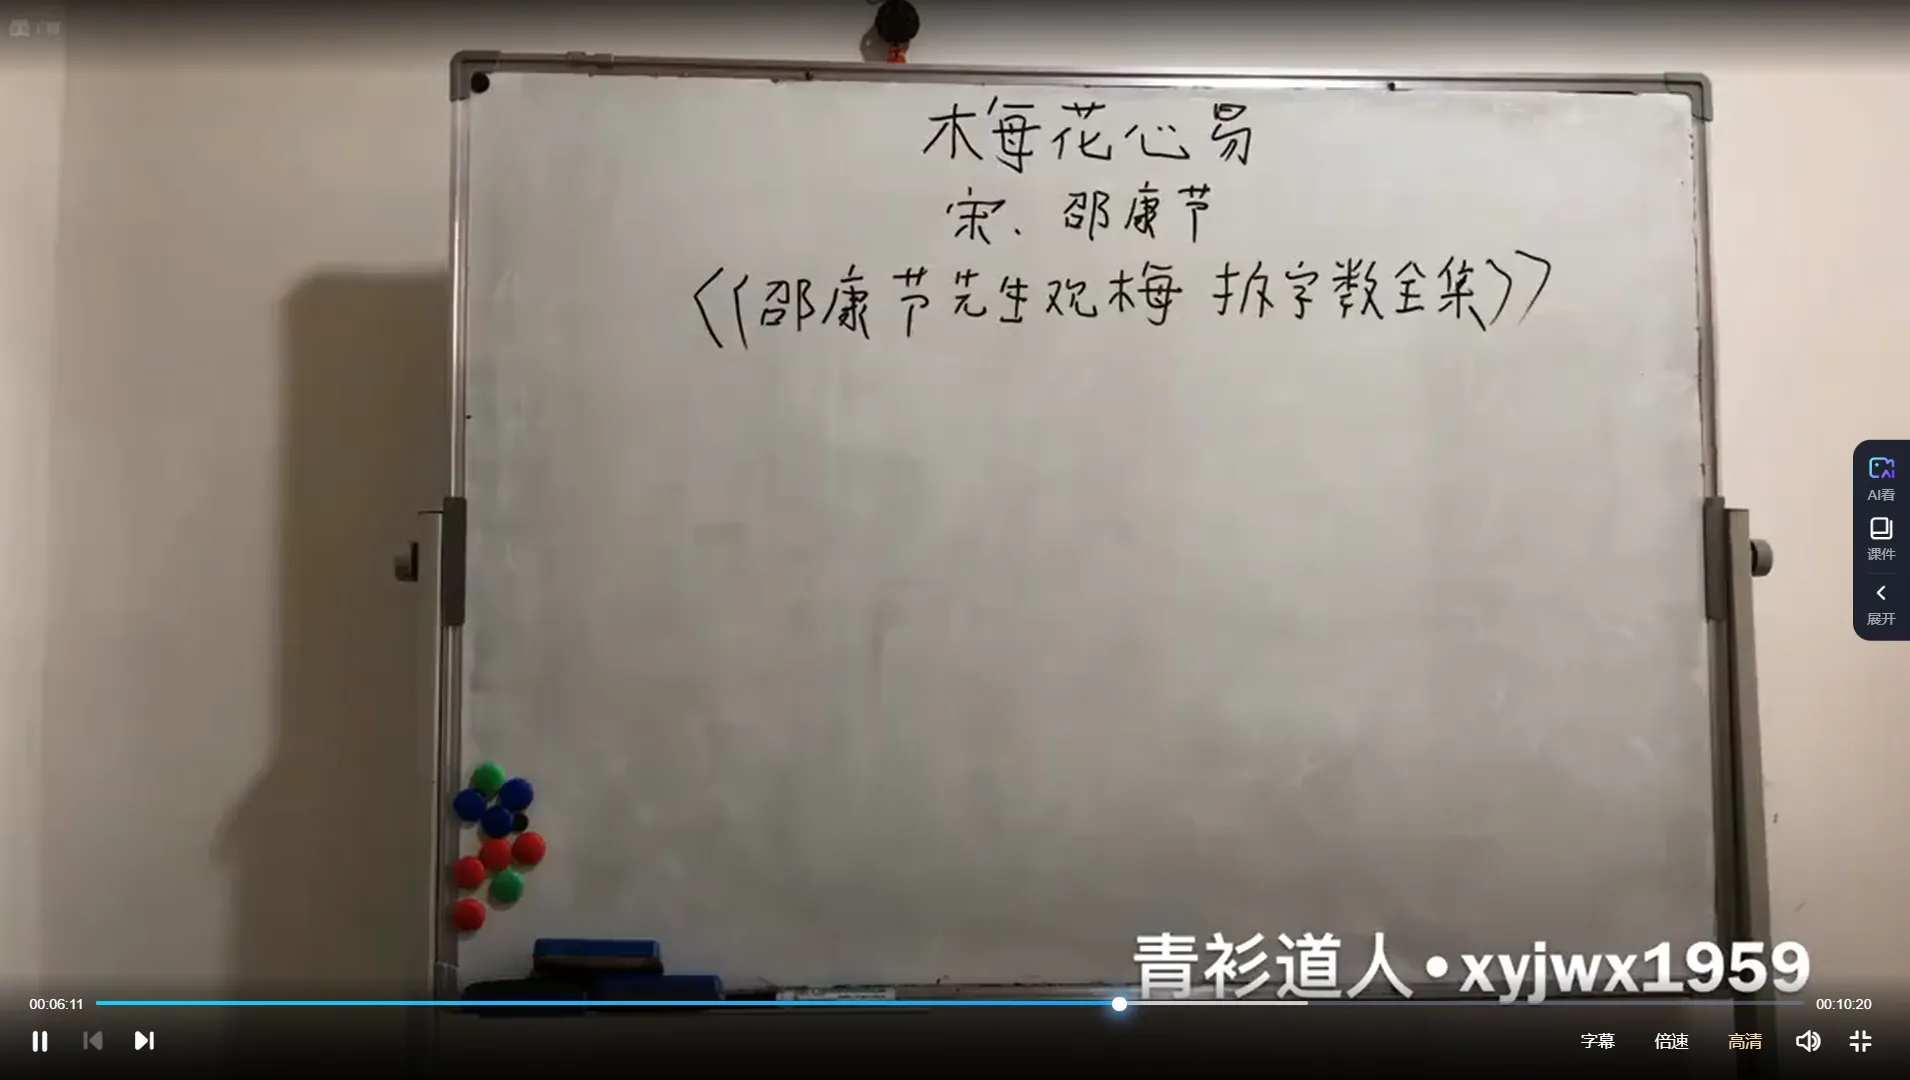 梅花心易
宋、邵康节
《邵康节先生观梅 拆字数全集》
AI看
课件
展开
青衫道人•xyjwx1959
00:06:11
00:10:20
字幕
倍速
高清